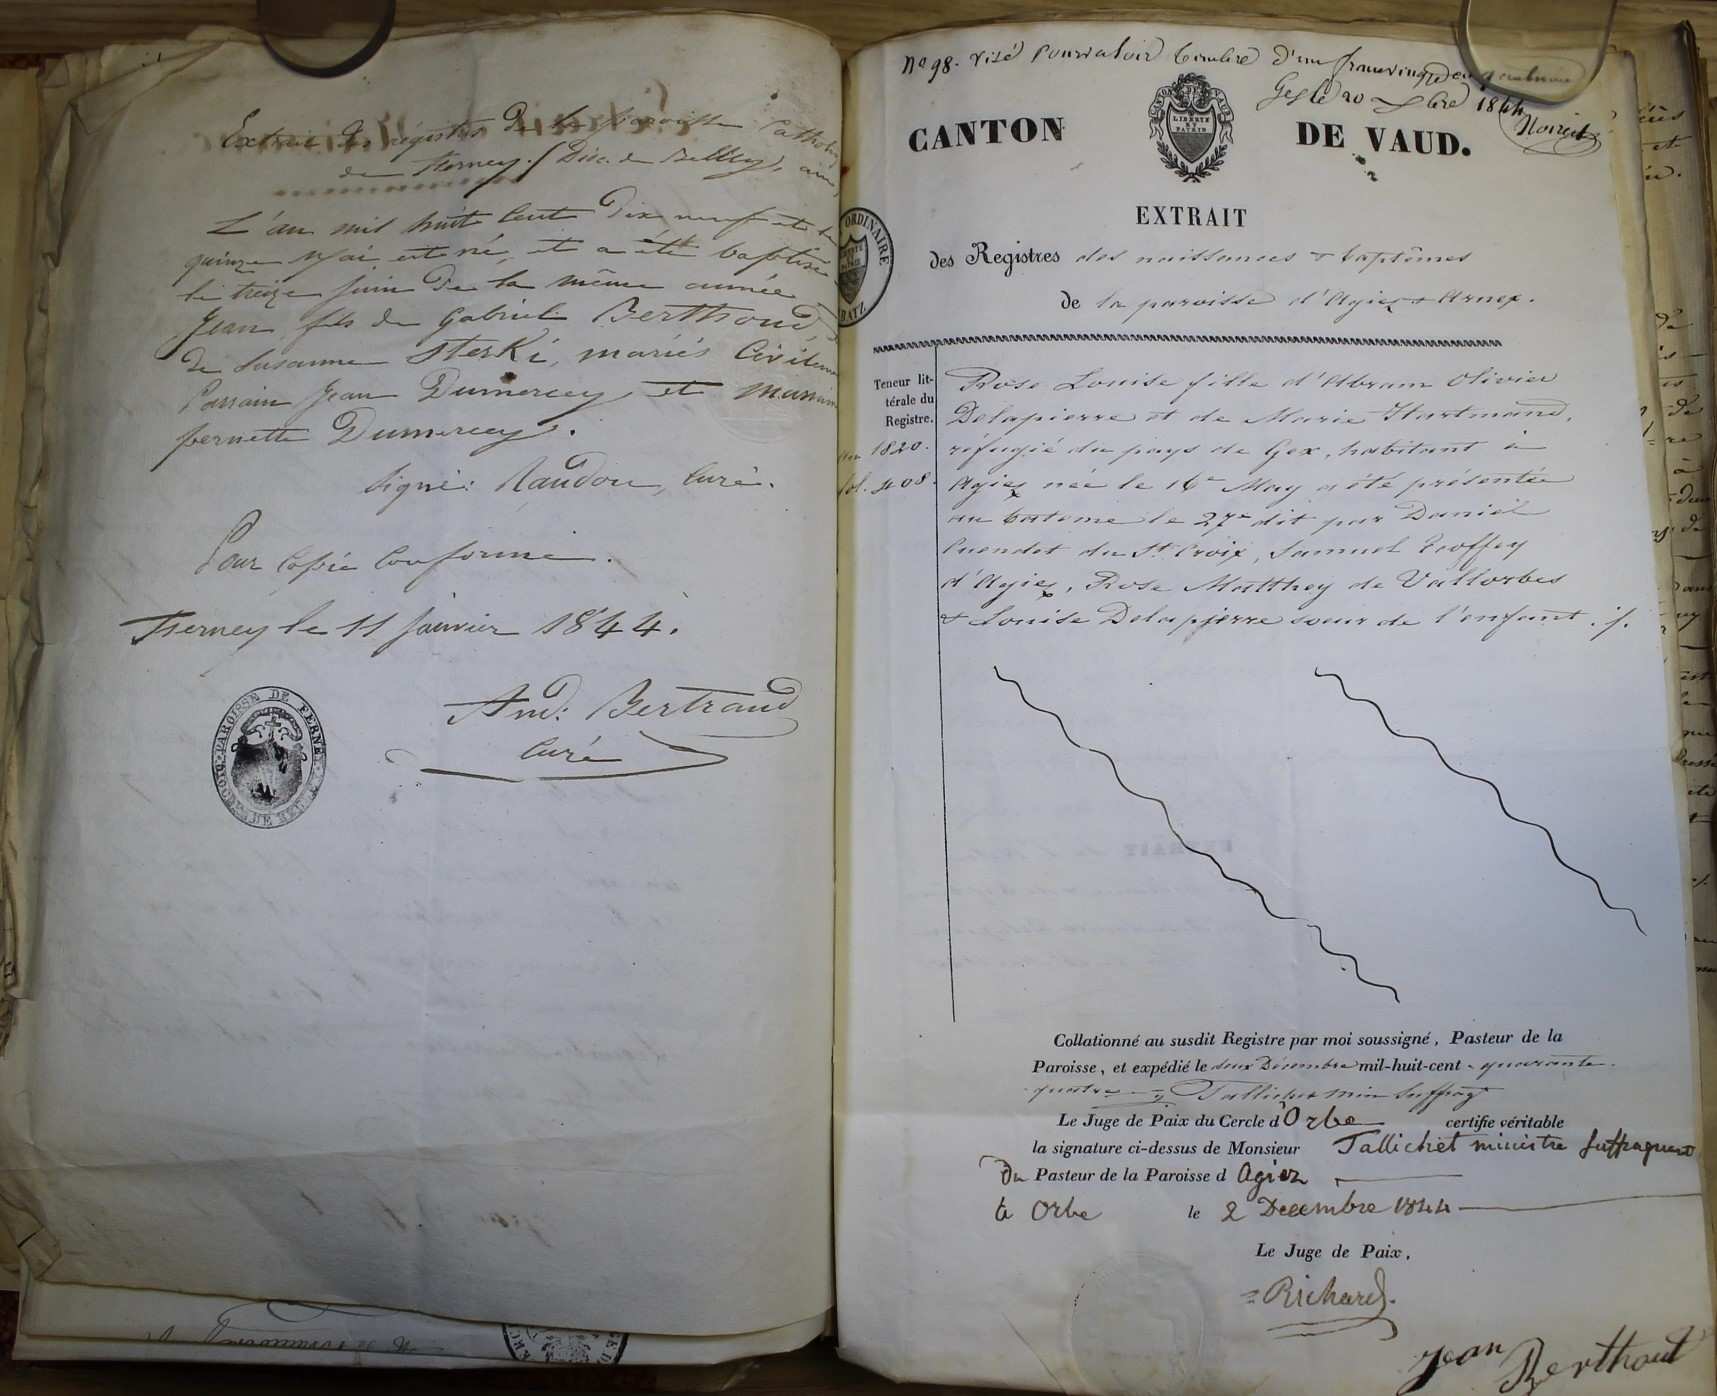 Extrait des registres de la paroisse Catholique
de Ferney (Dioc. de Belley, ain,
L'an mil huit cent dix neuf et le
quinze Mai est né, et a été baptisé
le treize Juin de la même année
Jean fils de Gabriel Berthoud,
de Susanne Sterki, mariés Civilem
Parrain Jean Dumercey et Marrain
pernette Dumercey.
Signé: Raudon, Curé.
Pour Copie Conforme.
Ferney le 11 Janvier 1844.
And: Bertrand
Curé
PAROISSE DE FERNEY
No 98. Visé Pour valoir timbre d'un franc vingt cinq centimes
Gex le 20 Xbre 1844
CANTON DE VAUD.
LIBERTÉ
ET
PATRIE
EXTRAIT
ORDINAIRE
BATZ
des Registres des naissances & baptêmes
de la paroisse d'Agiez & Arnex.
Teneur lit-
térale du
Registre.
1820.
fol. 408.
Rose Louise fille d'Abram Olivier
Delapierre et de Marie Hartmand,
réfugié du pays de Gex, habitant à
Agiez née le 16e May a été présentée
au bateme le 27e dit par Daniel
Cuendet du St Croix, Samuel Troffey
d'Agiez, Rose Matthey de Vallorbes
& Louise Delapierre soeur de l'enfant. /.
Collationné au susdit Registre par moi soussigné, Pasteur de la
Paroisse, et expédié le deux Décembre mil-huit-cent quarante
quatre Tallichet min Suffragt
Le Juge de Paix du Cercle d'Orbe certifie véritable
la signature ci-dessus de Monsieur Tallichet ministre suffragant
Du Pasteur de la Paroisse d Agiez
à Orbe le 2 Decembre 1844
Le Juge de Paix,
Richard.
Jean Berthout